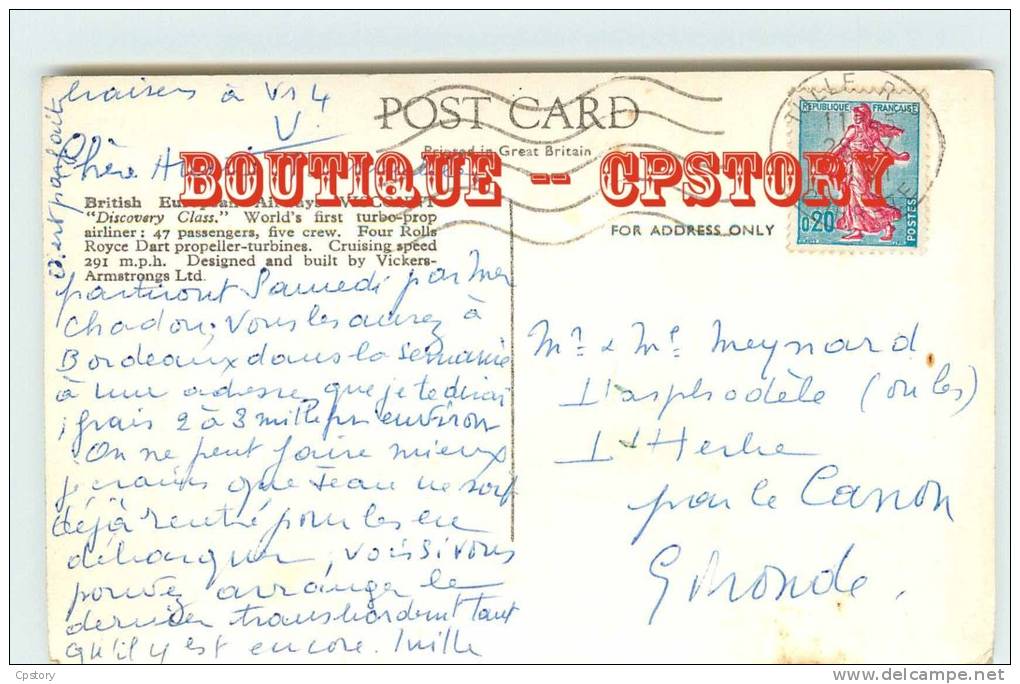 à V14
V.
Chère
POST CARD
Printed in Great Britain
BOUTIQUE -- CPSTORY
British European Airways VISCOUNT
"Discovery Class." World's first turbo-prop
airliner: 47 passengers, five crew. Four Rolls
Royce Dart propeller-turbines. Cruising speed
291 m.p.h. Designed and built by Vickers-
Armstrongs Ltd.
partiront Samedi par Mer
Vous les aurez à
Bordeaux dans la semaine
à une adresse que je te dirai
frais 2 à 3 mille environ
On ne peut faire mieux
je crains que Jean ne soit
déjà rentré pour les en
débarquer, vois si vous
pouvez arranger le
dernier transbordement tant
qu'il y est encore.
FOR ADDRESS ONLY
REPUBLIQUE FRANÇAISE
0,20
POSTES
Mr & Me Meynard
L'asphodèle (ou les)
L'Herbe
par le Canon
Gironde.
Cpstory
delcampe.net